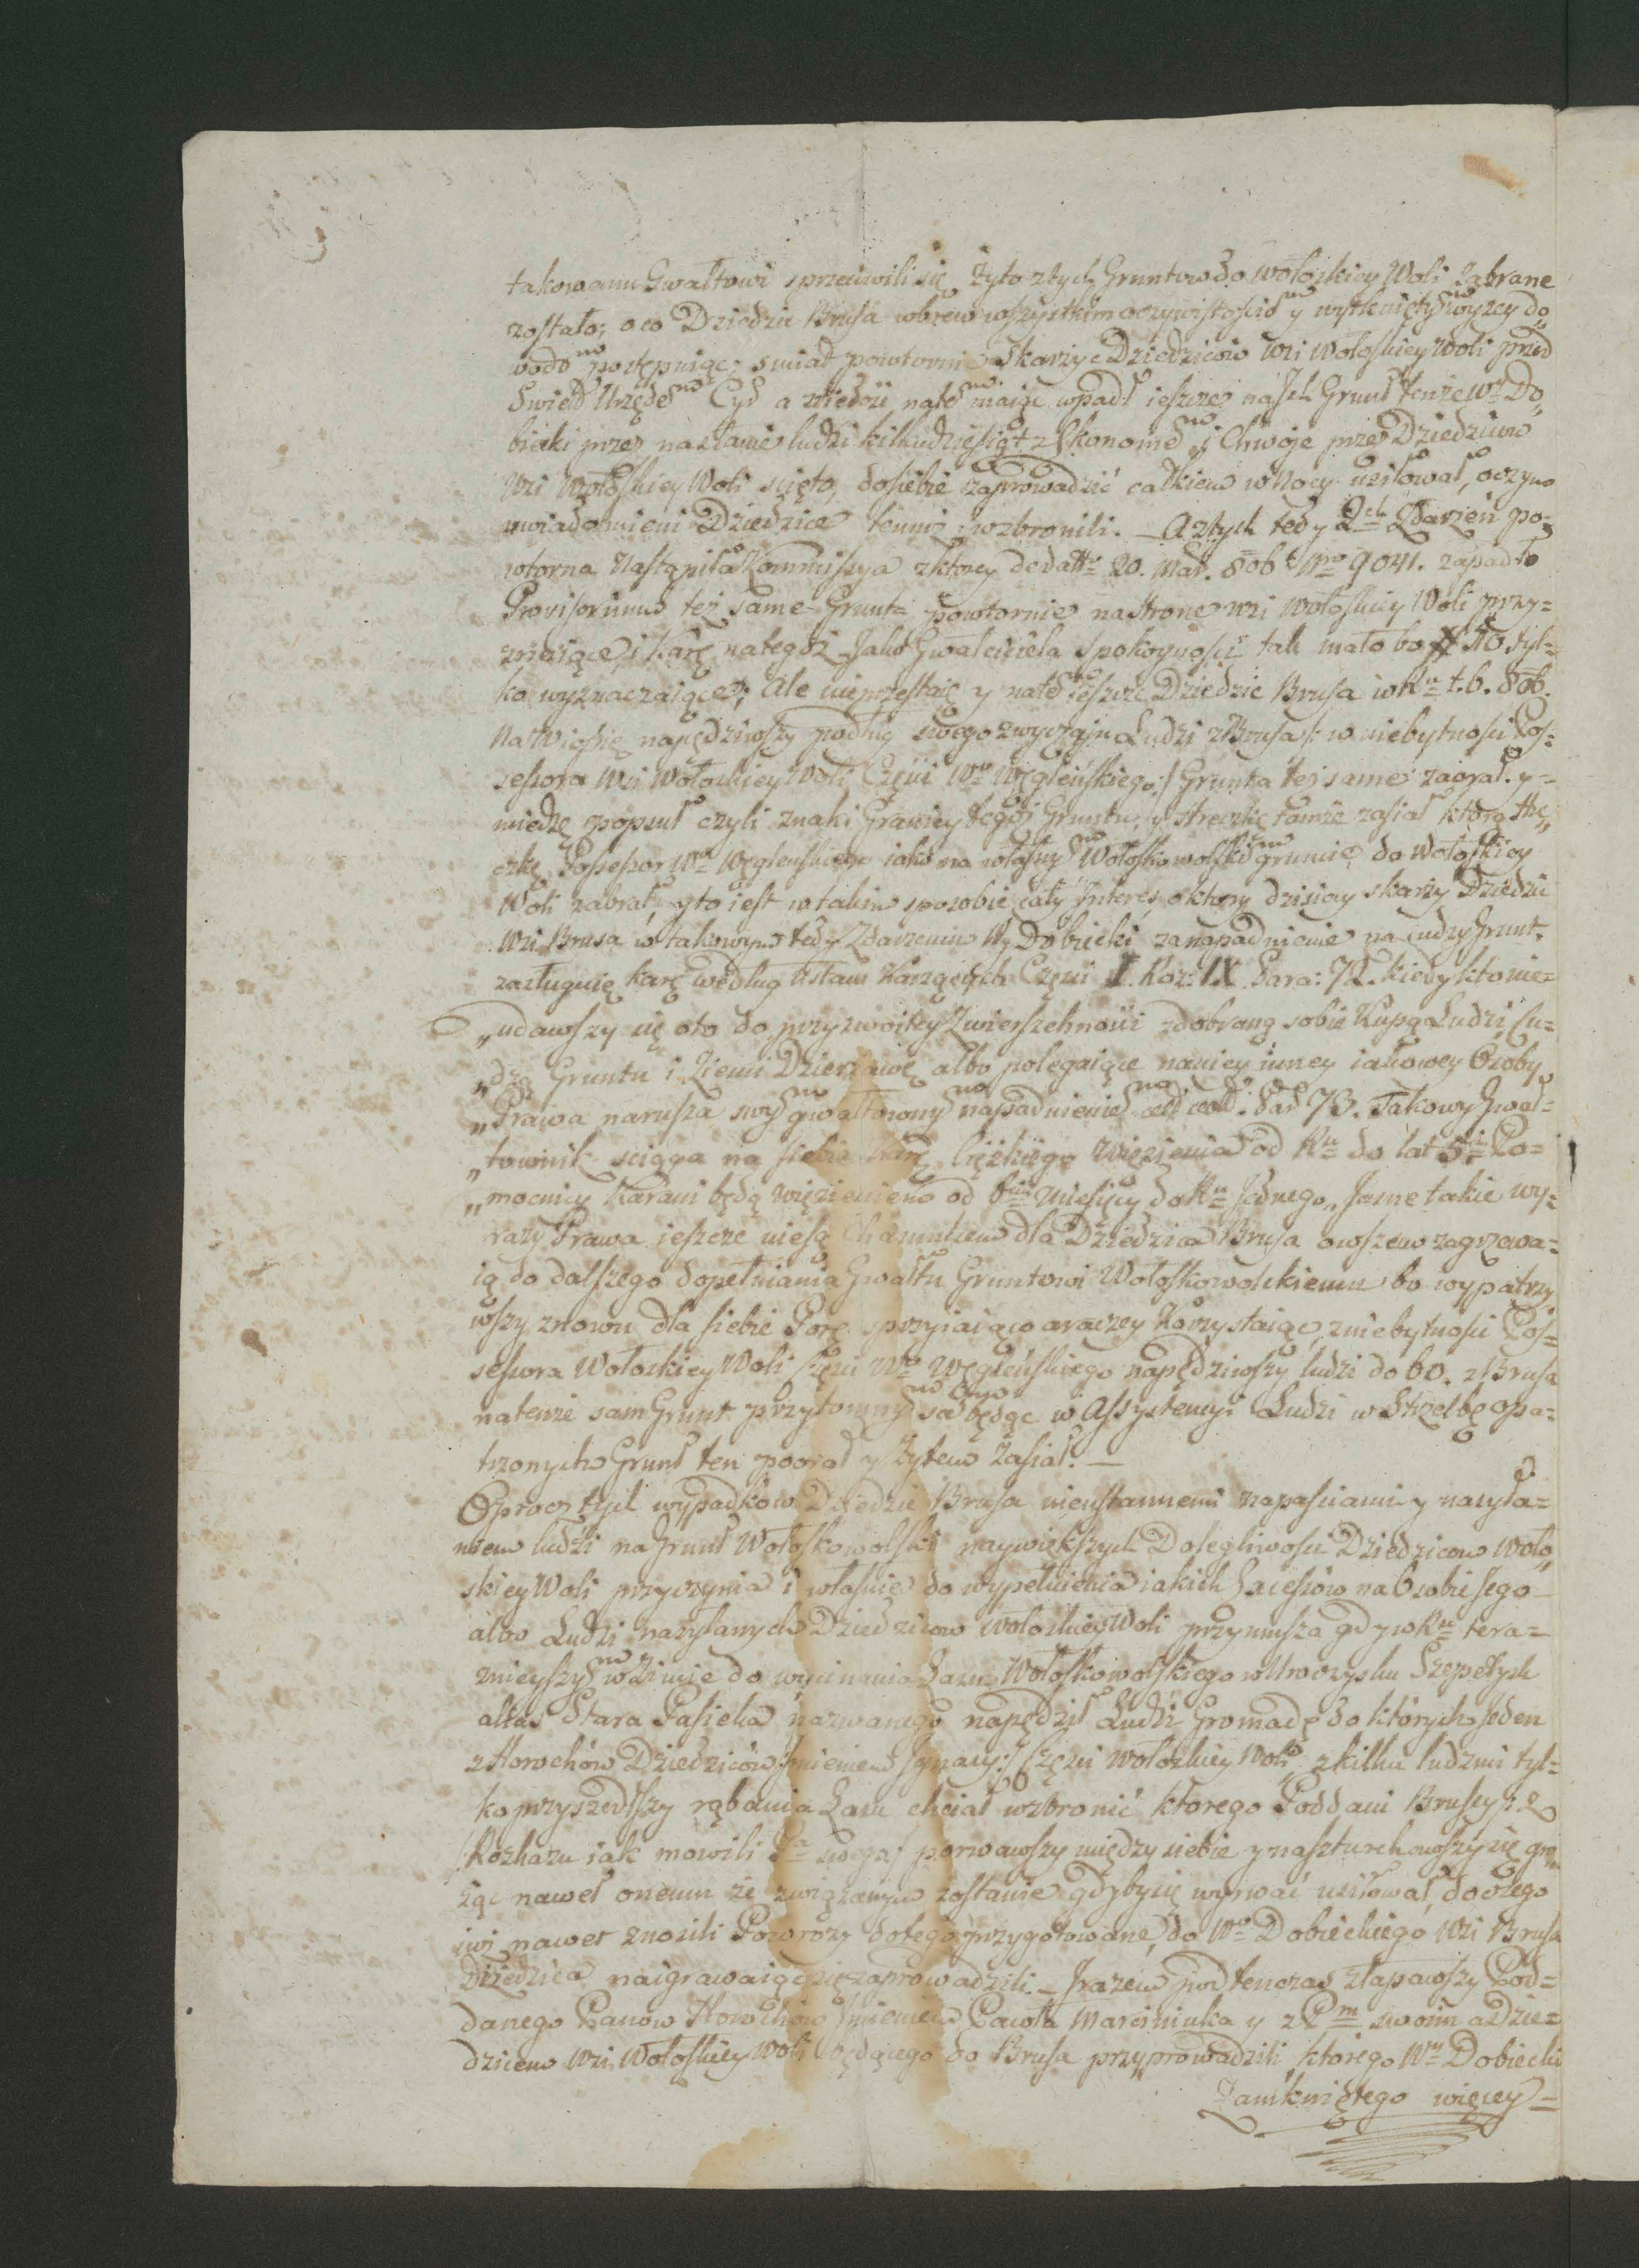 takowemu Gwałtowi sprzeciwili się Żyto z tych Gruntow do wołoskiey Woli Zabrane
zostało; o co Dziedzic Brusa wbrew wszystkim oczywistości y wytkniętym wyzey do„
wodom postępuiąc; smiał powtornie skarżyc Dziedzicow Wsi Wołoskiey Woli przed
Swiet Urzędem Cyr a niedosić natem maiąc wpadł ieszcze na Zch Grunt tenże Wny Do„
biecki przez nasłanie ludzi kilkudziesiąt z Ekonomem i Chwoje przez Dziedzicow
Wsi Wołoskiey Woli scięto, do siebie zaprowadzić całkiem w Nocy usiłował, o czym
uwiadomieni Dziedzice temuż wzbronili. — A z tych tedy 2ch Zdarzeń po=
wtorna Nastąpiła Kommissya z ktorey de datto 20. Mar. 806 Nro 9041. zapadło
Provisorium też same Grunta powtornie na strone wsi Wołoskiey Woli przy=
znaiące, i Karę na tegoż Jako Gwałciciela spokoyności tak mało bo # 50 tyl=
ko wyznaczaiące; Ale nieprzestaię y natem ieszcze Dziedzic Brusa w Ru t. b. 806.
Na Wiosnę napędziwszy podług swego zwyczaju Ludzi z Brusa /: w niebytności Pos=
sessora Wsi Wołoskiey Woli Częsci Wo Węgleńskiego:/ Grunta też same zaorał. y=
miedzę popsuł czyli znaki Granicy tegoż Gruntu, y Hreczkę tamże zasiał którą Hre„
czkę Possessor Wn Węgleński iako na własnym Wołoskowolskim gruncie do Wołoskiey
Woli zabrał, y to iest w takim sposobie cały Interes o ktory dzisiay skarży Dziedzic
Wsi Brusa w takowym tedy Zdarzeniu Wy Dobiecki za napadnienie na cudzy Grunt
zasługuię karę według Ustaw Karzących Częsci I. Roz: IX. Para: 72. kiedy kto nie=
„udawszy się o to do przyzwoitey Zwierzchności z dobraną sobie Kupą Ludzi Cu=
„dzą Gruntu i Ziemi Dzierzawę albo polegaiące na niey inney iakowey Osoby
„Prawa narusza swym gwałtownym napadnieniem Par 73. Takowy Gwał=
„townik sciąga na siebie karę Cięzkiego Więzienia od Ru do lat 5ciu Po=
„mocnicy Karani będą więzieniem od 6ciu Miesięcy do Ru Jednego„ Jasne takie wy=
razy Prawa ieszcze niesą Hamulcem dla Dziedzica Brusa owszem zagrzewa=
ią do dalszego dopełniania Gwałtu Gruntowi Wołoskowolskiemu bo wypatrzy
wszy znowu dla siebie Porę sprzyiaiącą a raczey Korzystaiąc z niebytności Pos=
sessora Wołoskiey Woli Częsci Wo Węgleńskiego napędziwszy ludzi do 60. z Brusa
na tenże sam Grunt przytomnym sam będąc w Assystencyi Ludzi w Strzelbę opa=
trzonych Grunt ten poorał y Żytem Zasiał. —
Oprocz tych wypadkow Dziedzic Brusa nieustannemi napasciami y nasyła=
niem ludzi na Grunt Wołoskowolski naywiększych Dolegliwości Dziedzicow Woło„
skiey Woli przyczynia i własnie do wypełnienia iakich Excessów na Osobie Jego
albo Ludzi nasyłanych Dziedzicow Wołoskiey Woli przymusza gdy w Ru tera=
znieyszym w Zimie do wycinania Lasu Wołoskowolskiego w Uroczysku Szepetych
alias Stara Pasieka nazwanego napędził Ludzi Gromadę do których Jeden
z Horochów Dziedziców /:Imieniem Ignacy:/ Częsci Wołoskiey Woli z kilku ludzmi tyl=
ko przyszedłszy rąbania Lasu chciał wzbronić ktorego Poddani Brusey /: z
Rozkazu iak mowili Pa swego:/ porwawszy między siebie y naszturchawszy się gro
żąc nawet onemu że związanym zostanie gdyby się wyrwać usiłował, do czego
iuż nawet znosili Powrozy do tego przygotowane, do Wo Dobieckiego Wsi Brusa
Dziedzica naigrawaiąc się zaprowadzili. — Irazem podtenczas złapawszy Pod=
danego Panow Horochów Imieniem Pawła Marciniuka y z Pm swoim a Dzie=
dzicem Wsi Wołoskiey Woli będącego do Brusa przyprowadzili ktorego Wny Dobiecki
Zamkniętego więcey=